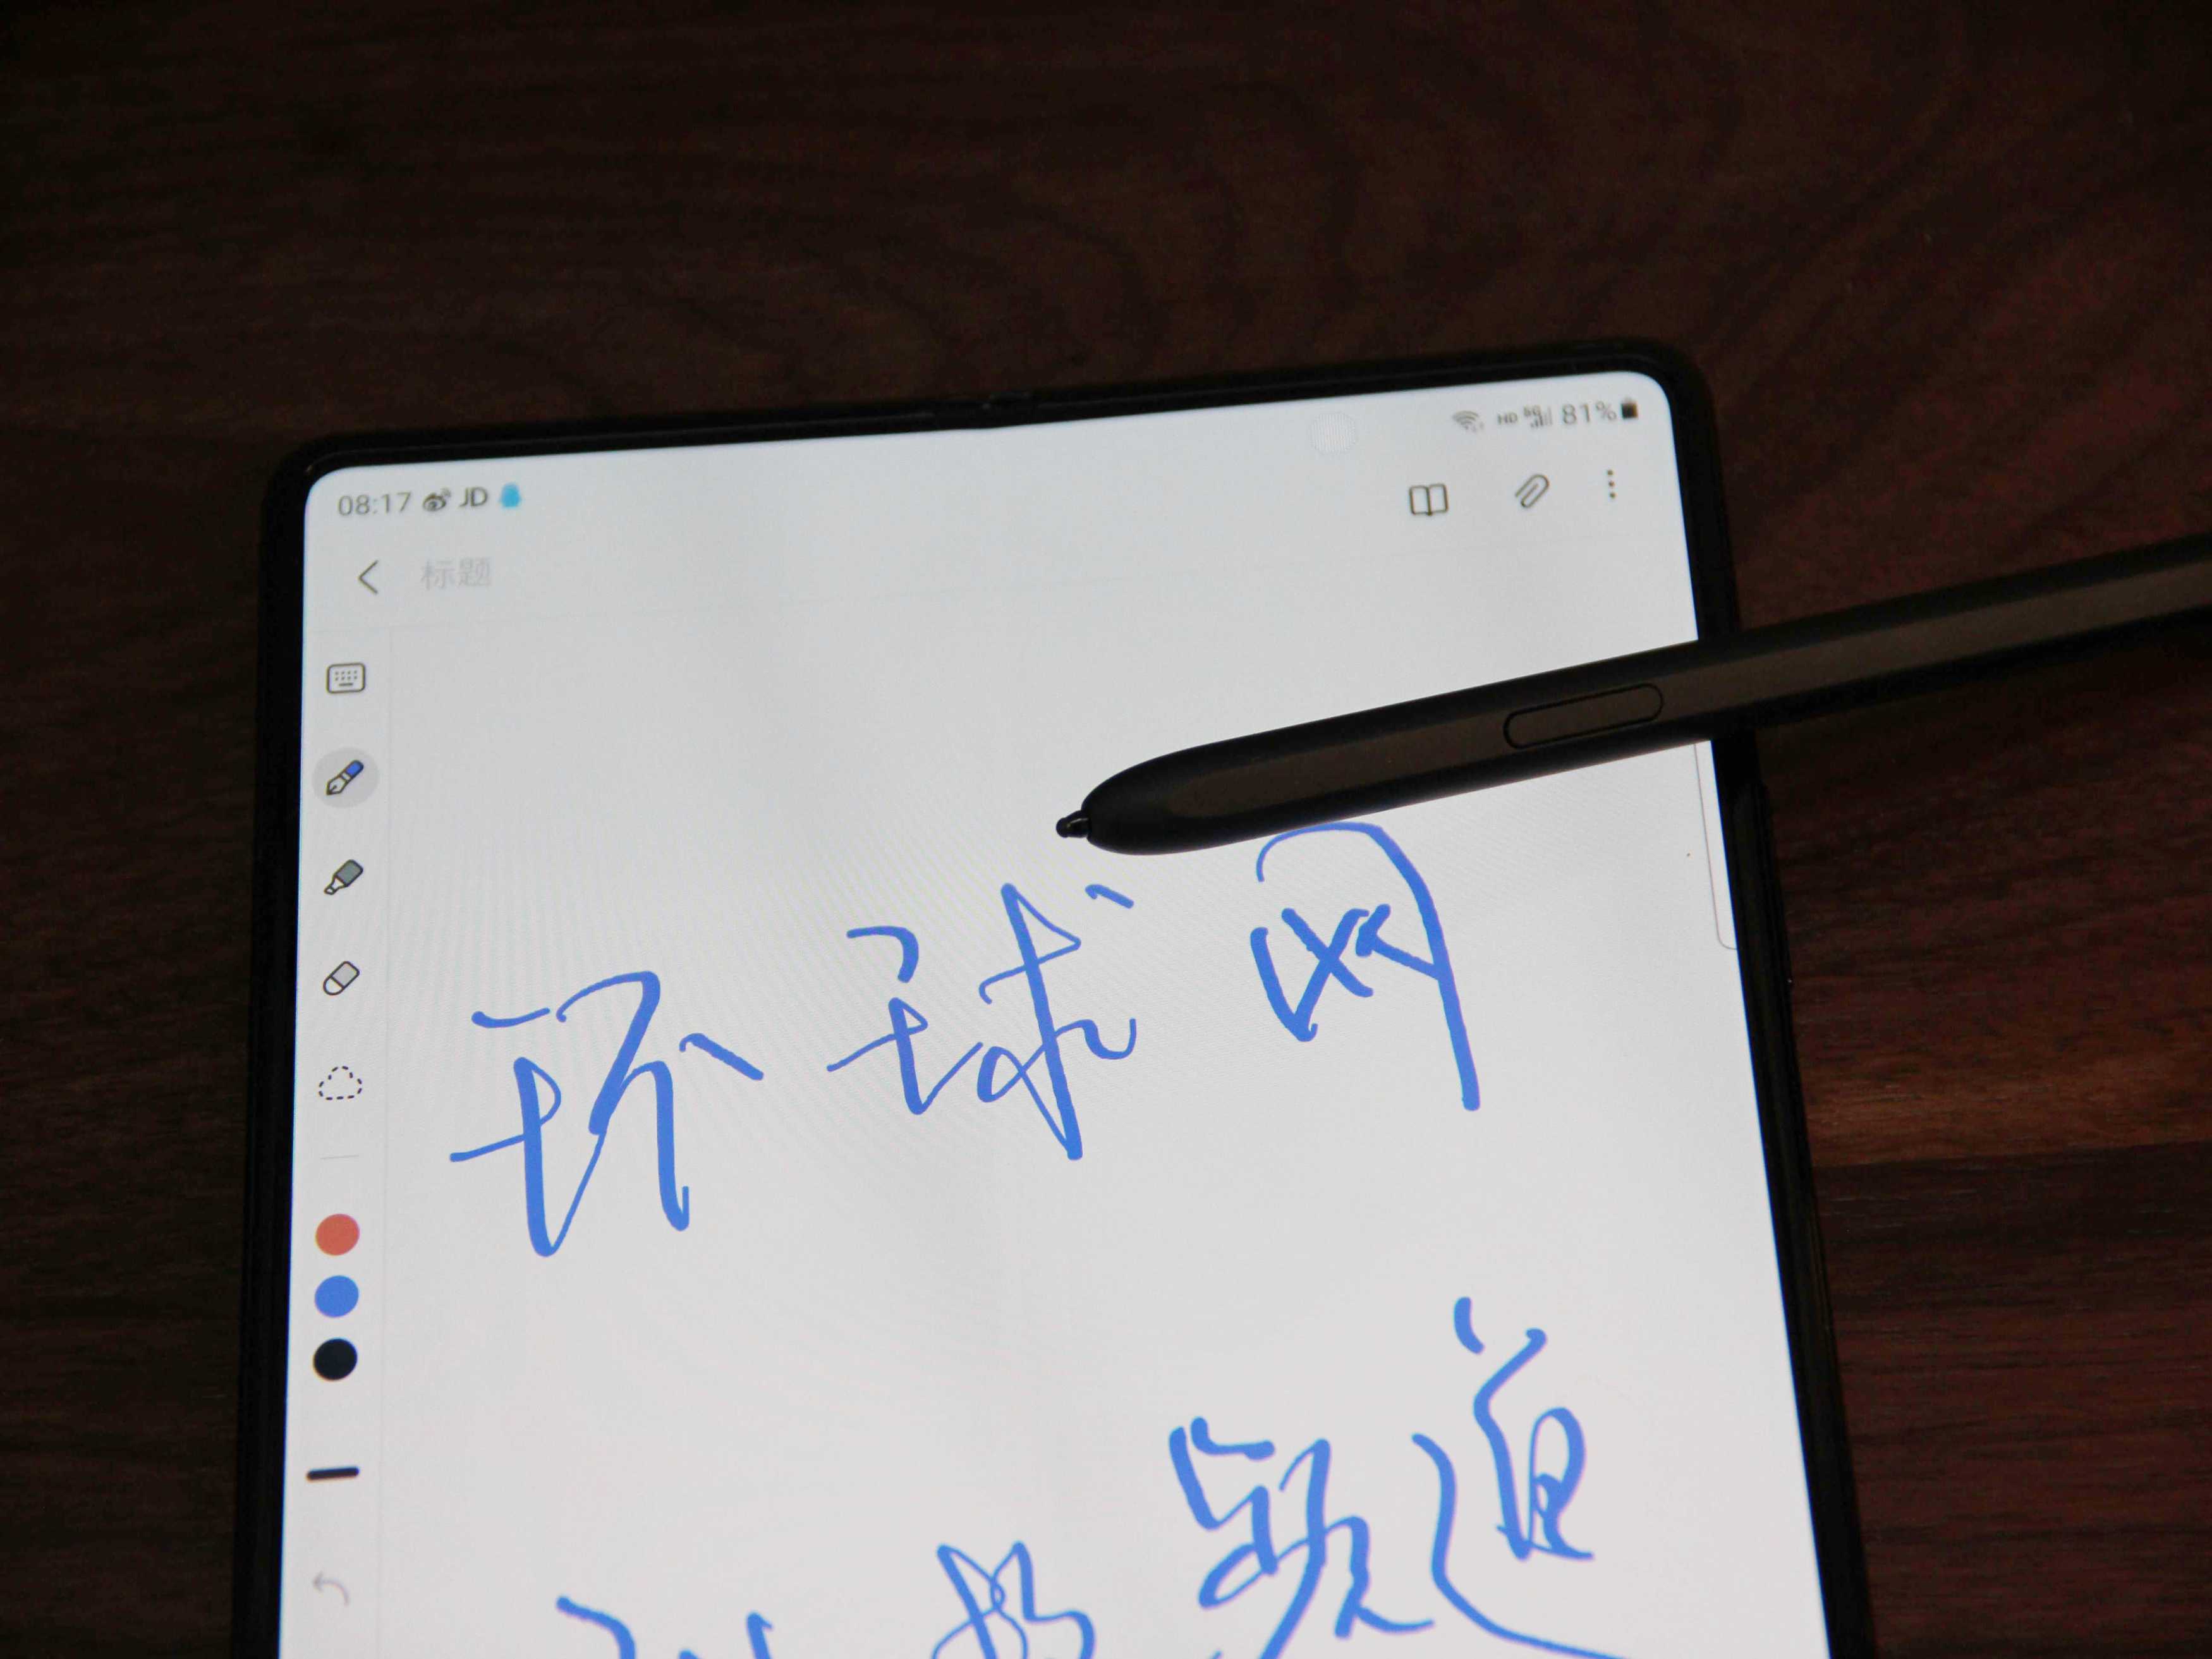 08:17 JD HD 5G 81%
标题
环球网
频道